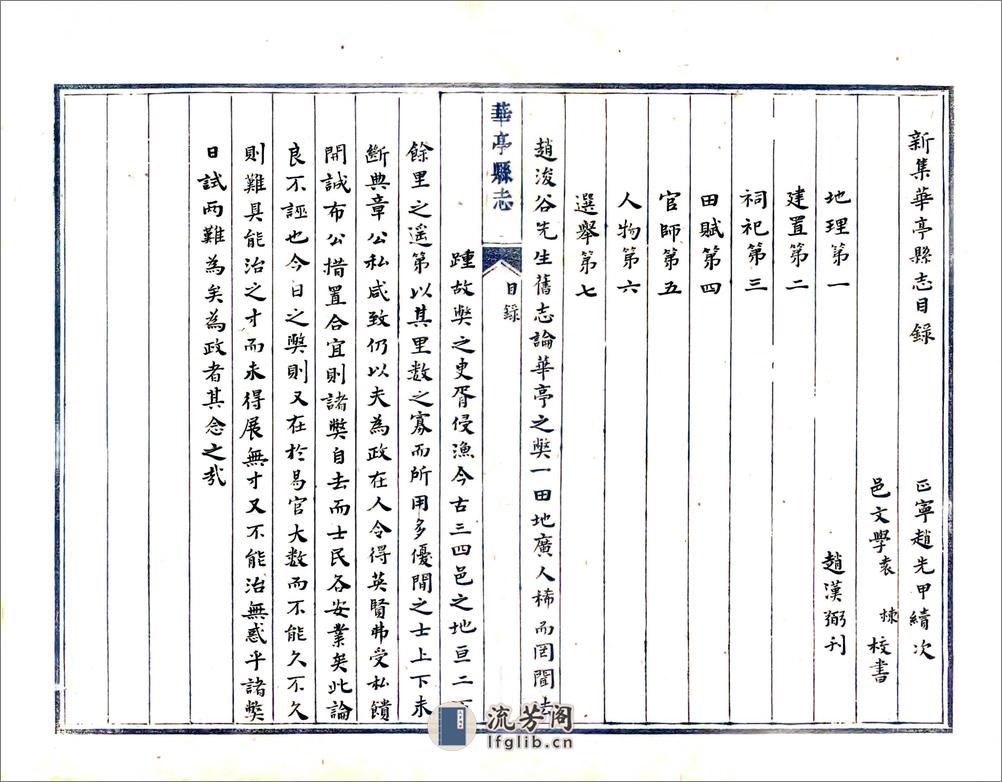 新集華亭縣志目録
正寧趙先甲續次
邑文學袁 棟校書
地理第一
趙漢弼刊
建置第二
祠祀第三
田賦第四
官師第五
人物第六
選舉第七
趙浚谷先生舊志論華亭之獘一田地廣人稀而罔聞法
華亭縣志
目録
踵故獘之吏胥侵漁今古三四邑之地亘二百
餘里之遥第以其里数之寡而所用多優閒之士上下未
斷典章公私咸致仍以夫為政在人令得英賢弗受私饋
開誠布公措置合宜則諸獘自去而士民各安業矣此論
良不誣也今日之獘則又在於易官大数而不能久不久
則難具能治之才而未得展無才又不能治無惑乎諸獘
日試而難為矣為政者其念之哉
流芳阁
lfglib.cn